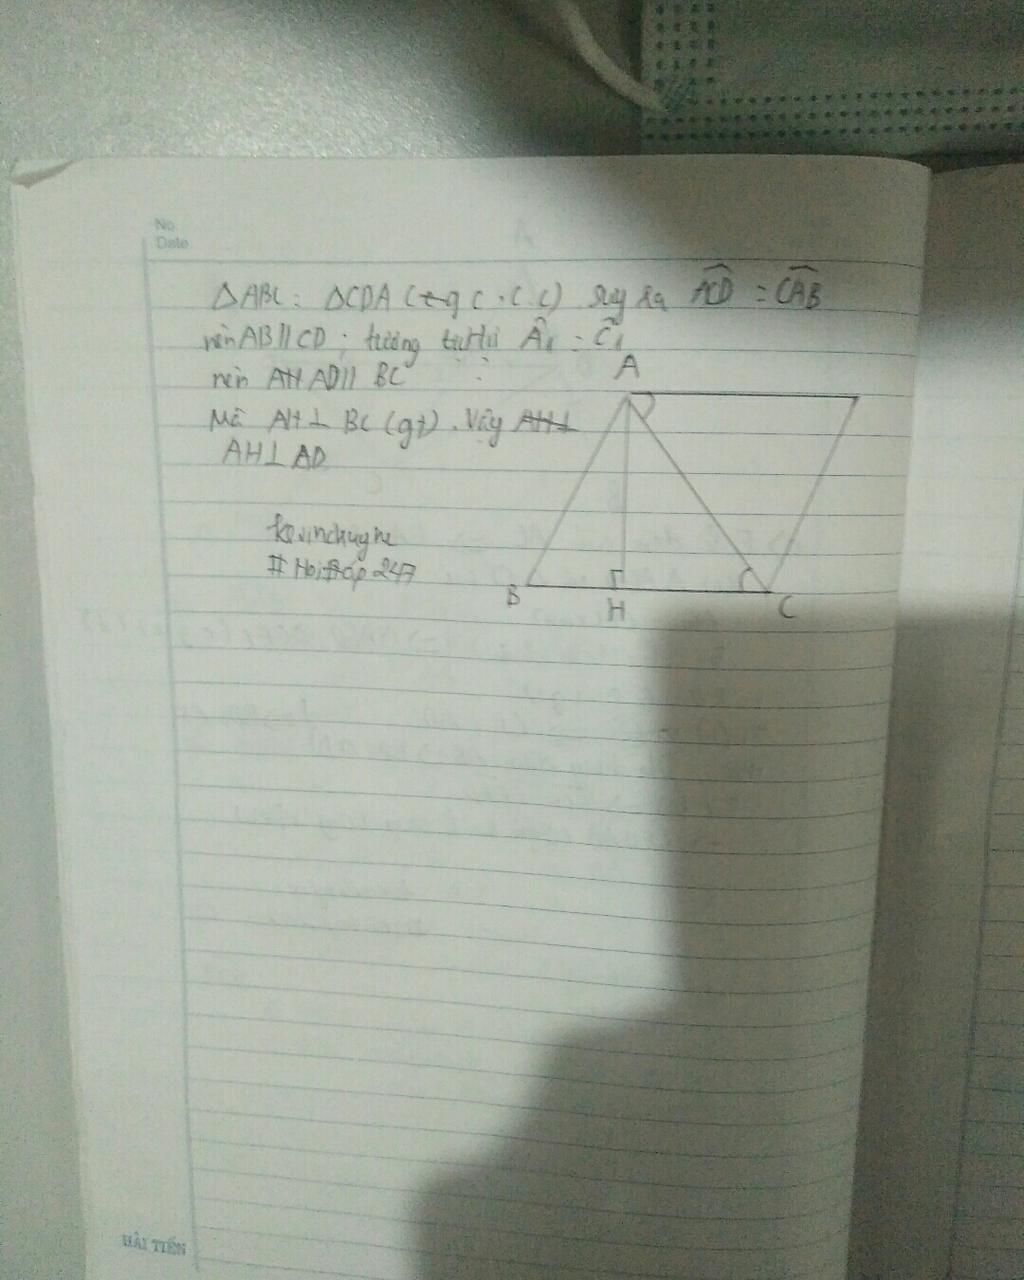 No.
Date
ΔABC = ΔCDA (c.c.c) suy ra ACD = CAB
nên AB//CD ; tương tự Â₁ = Ĉ₁
nên AD // BC
Mà AH ⊥ BC (gt). Vậy AH⊥
AH ⊥ AD
A
kevinchuyhe
#Hoiđáp247
B
H
C
HẢI TIẾN